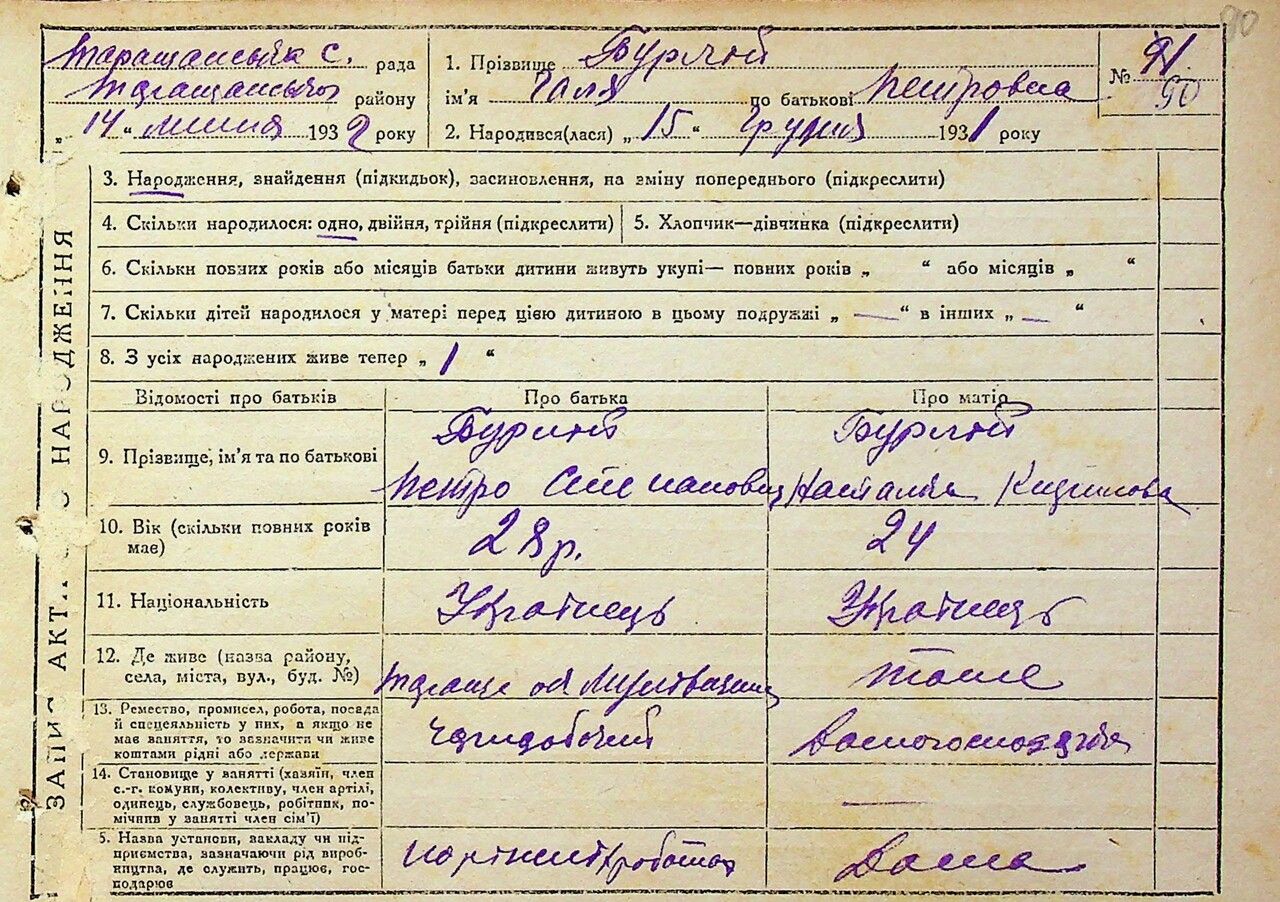 90
Таращанська с. рада
Таращанського району
„ 14 “ липня 1932 року
1. Прізвище Бурлій
ім'я Галя по батькові Петровна
2. Народився(лася) „ 15 “ Грудня 1931 року
№ 91
90
ЗАПИС АКТ НАРОДЖЕННЯ
3. Народження, знайдення (підкидьок), засиновлення, на зміну попереднього (підкреслити)
4. Скільки народилося: одно, двійня, трійня (підкреслити)
5. Хлопчик—дівчинка (підкреслити)
6. Скільки повних років або місяців батьки дитини живуть укупі— повних років „ “ або місяців „ “
7. Скільки дітей народилося у матері перед цією дитиною в цьому подружжі „ — “ в інших „ — “
8. З усіх народжених живе тепер „ 1 “
Відомості про батьків
Про батька
Про матір
9. Прізвище, ім'я та по батькові
Бурлий
Петро Степанович
Бурлій
Наталія
10. Вік (скільки повних років
має)
28 р.
24
11. Національність
Українець
Українець
12. Де живе (назва району,
села, міста, вул., буд. №)
тоше
13. Ремество, промисел, робота, посада
й спецеяльність у них, а якщо не
має заняття, то зазначити чи живе
коштами рідні або держави
Чорнробочий
Домогосподарка
14. Становище у занятті (хазяїн, член
с.-г. комуни, колективу, член артілі,
одинець, службовець, робітник, по-
мічник у занятті член сім'ї)
—
5. Назва установи, закладу чи під-
приємства, зазначаючи рід вироб-
ництва, де служить, працює, гос-
подарює
Дома